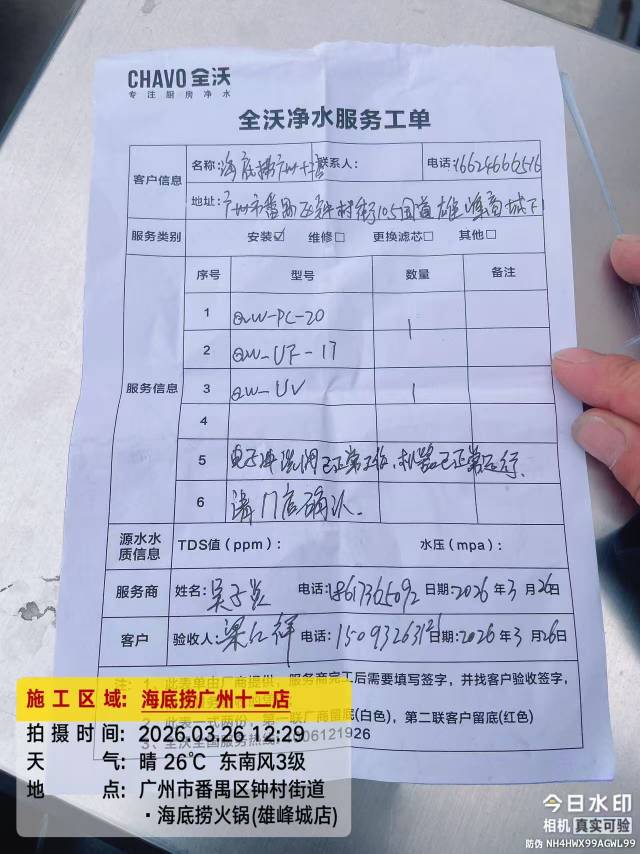 CHAVO 全沃
专注厨房净水
全沃净水服务工单
客户信息
名称: 海底捞广州十二店 联系人: 电话: 16624666516
地址: 广州市番禺区钟村街105国道雄峰商城下
服务类别 安装☑ 维修□ 更换滤芯□ 其他□
服务信息
序号 型号 数量 备注
1 QW-PC-20 1
2 QW-UF-17
3 QW-UV 1
4
5 电子冲洗阀已正常工作,机器已正常运行.
6 请门店确认.
源水水质信息 TDS值(ppm): 水压(mpa):
服务商 姓名: 电话: 日期: 2026年3月26日
客户 验收人: 梁仁祥 电话: 日期: 2026年3月26日
注: 1、此表单由厂商提供,服务商完工后需要填写签字,并找客户验收签字,
2、此表一式两份,第一联厂商留底(白色),第二联客户留底(红色)
3、全沃全国服务热线 06121926
施工区域: 海底捞广州十二店
拍摄时间: 2026.03.26 12:29
天气: 晴 26℃ 东南风3级
地点: 广州市番禺区钟村街道
·海底捞火锅(雄峰城店)
今日水印
相机 真实可验
防伪 NH4HWX99AGWL99